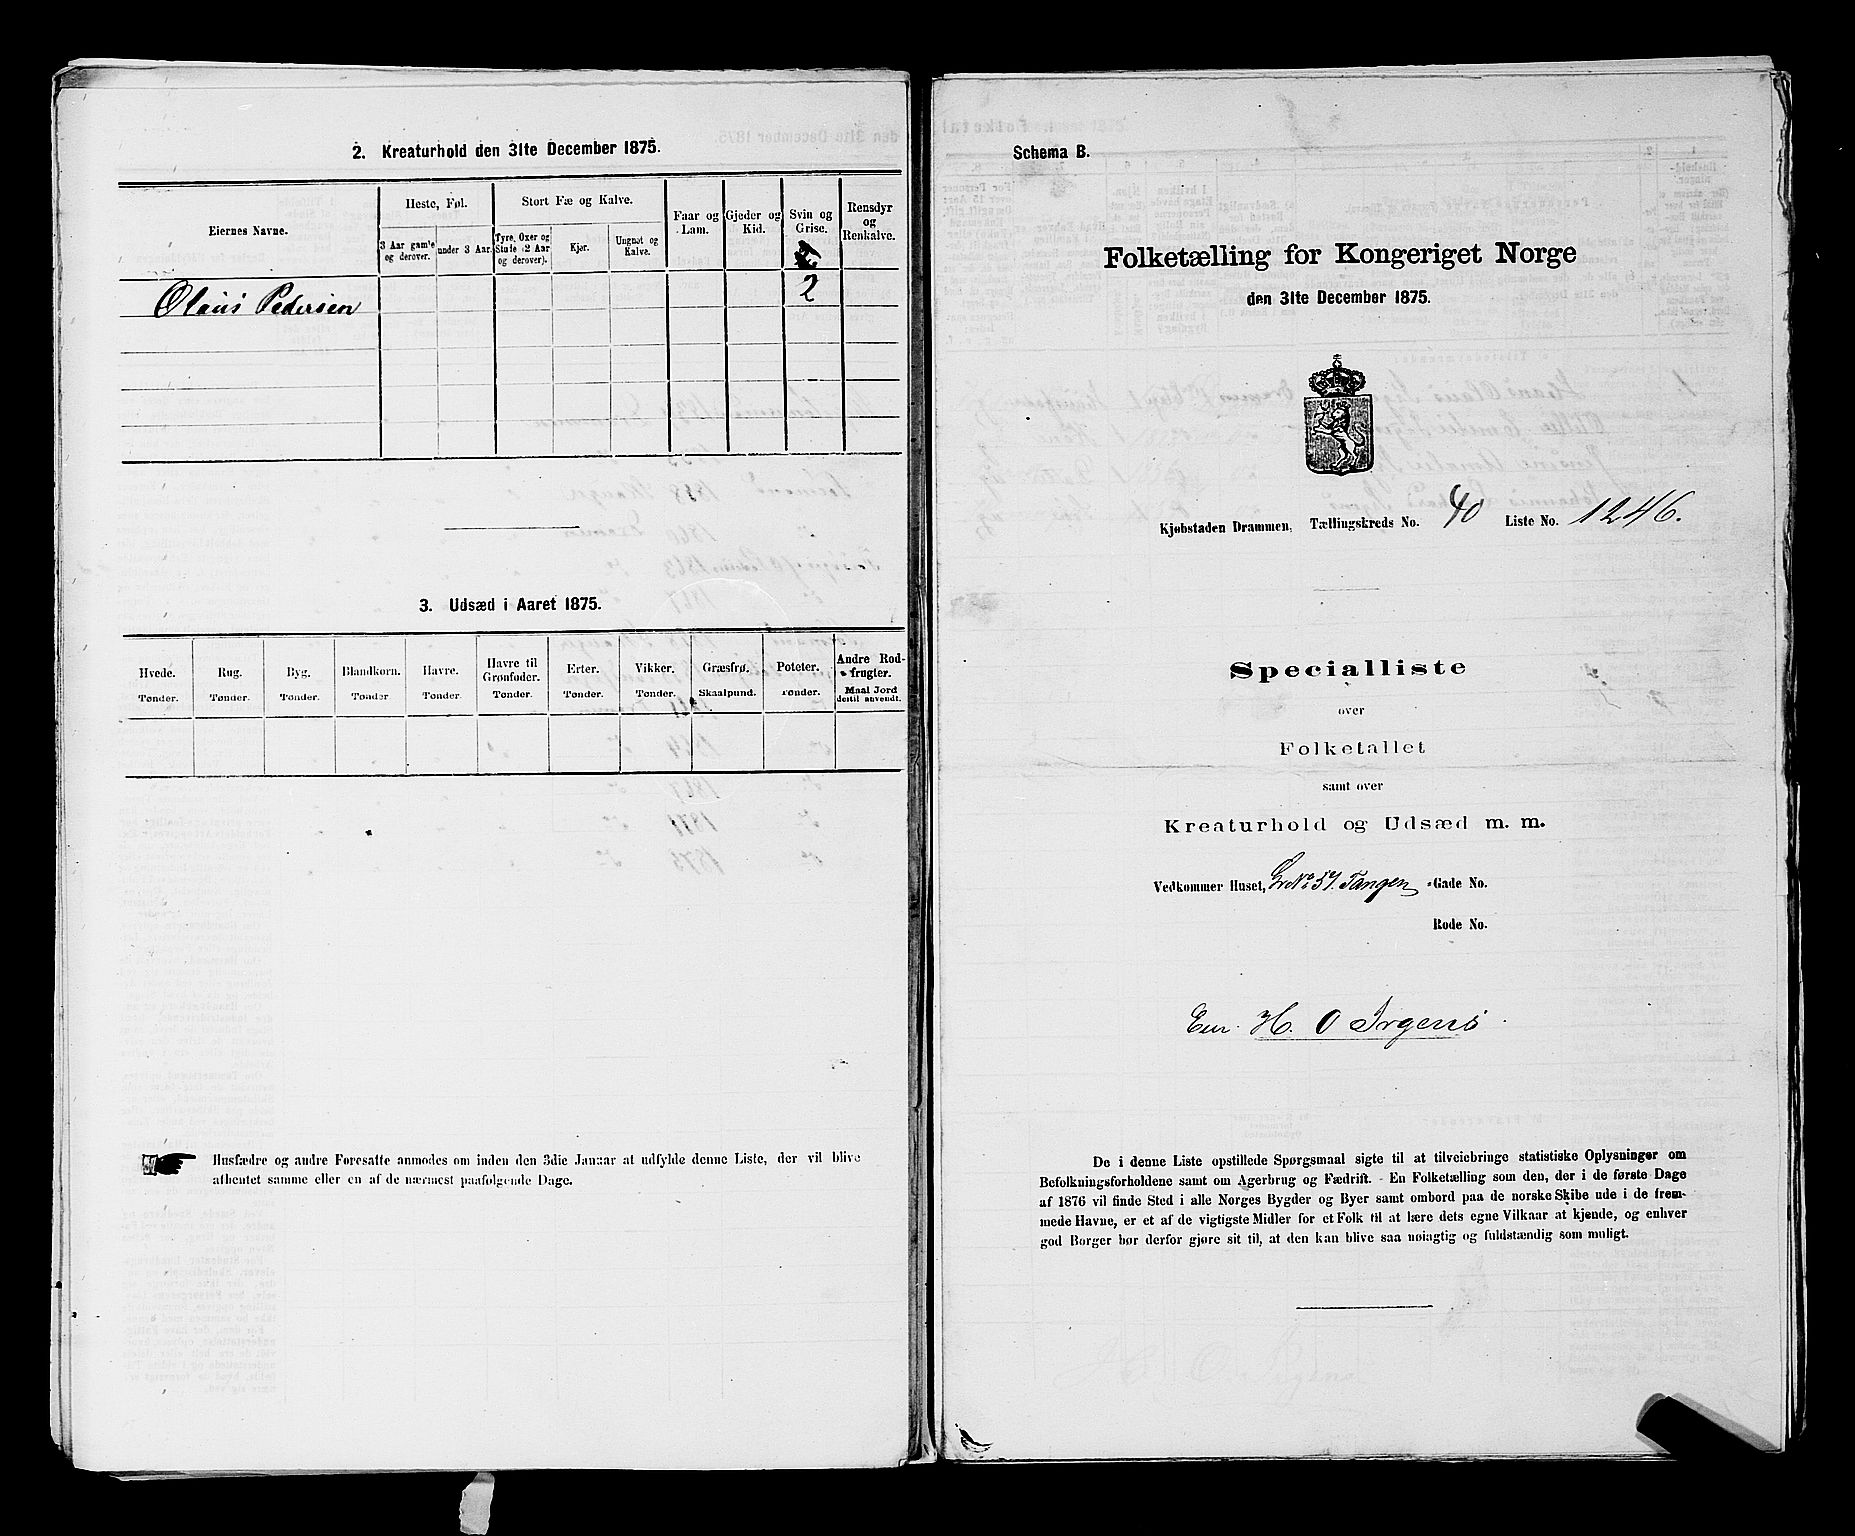 2. Kreaturhold den 31te December 1875.
Eiernes Navne.
Heste, Føl.
Stort Fæ og Kalve.
Faar og Lam.
Gjeder og Kid.
Svin og Grise.
Rensdyr og Renkalve.
3 Aar gamle og derover.
under 3 Aar.
Tyre, Oxer og Stude (2 Aar og derover).
Kjør.
Ungnøt og Kalve.
Olaus Pedersen 2
3. Udsæd i Aaret 1875.
Hvede. Rug. Byg. Blandkorn. Havre. Havre til Grønfoder. Erter. Vikker. Græsfrø. Poteter. Andre Rodfrugter.
Tønder. Tønder. Tønder. Tønder Tønder. Tønder. Tønder. Tønder. Skaalpund. Tønder. Maal Jord dertil anvendt.
Husfædre og andre Foresatte anmodes om inden den 3die Januar at udfylde denne Liste, der vil blive
afhentet samme eller en af de nærmest paafølgende Dage.
Schema B.
Folketælling for Kongeriget Norge
den 31te December 1875.
Kjøbstaden Drammen, Tællingskreds No. 40 Liste No. 1246.
Specialliste
over
Folketallet
samt over
Kreaturhold og Udsæd m. m.
Vedkommer Huset, Gr No 57. Tangen -Gade No.
Rode No.
Eier. H. O Irgens
De i denne Liste opstillede Spørgsmaal sigte til at tilveiebringe statistiske Oplysninger om
Befolkningsforholdene samt om Agerbrug og Fædrift. - En Folketælling som den, der i de første Dage
af 1876 vil finde Sted i alle Norges Bygder og Byer samt ombord paa de norske Skibe ude i de frem-
mede Havne, er et af de vigtigste Midler for et Folk til at lære dets egne Vilkaar at kjende, og enhver
god Borger bør derfor gjøre sit til, at den kan blive saa nøiagtig og fuldstændig som muligt.